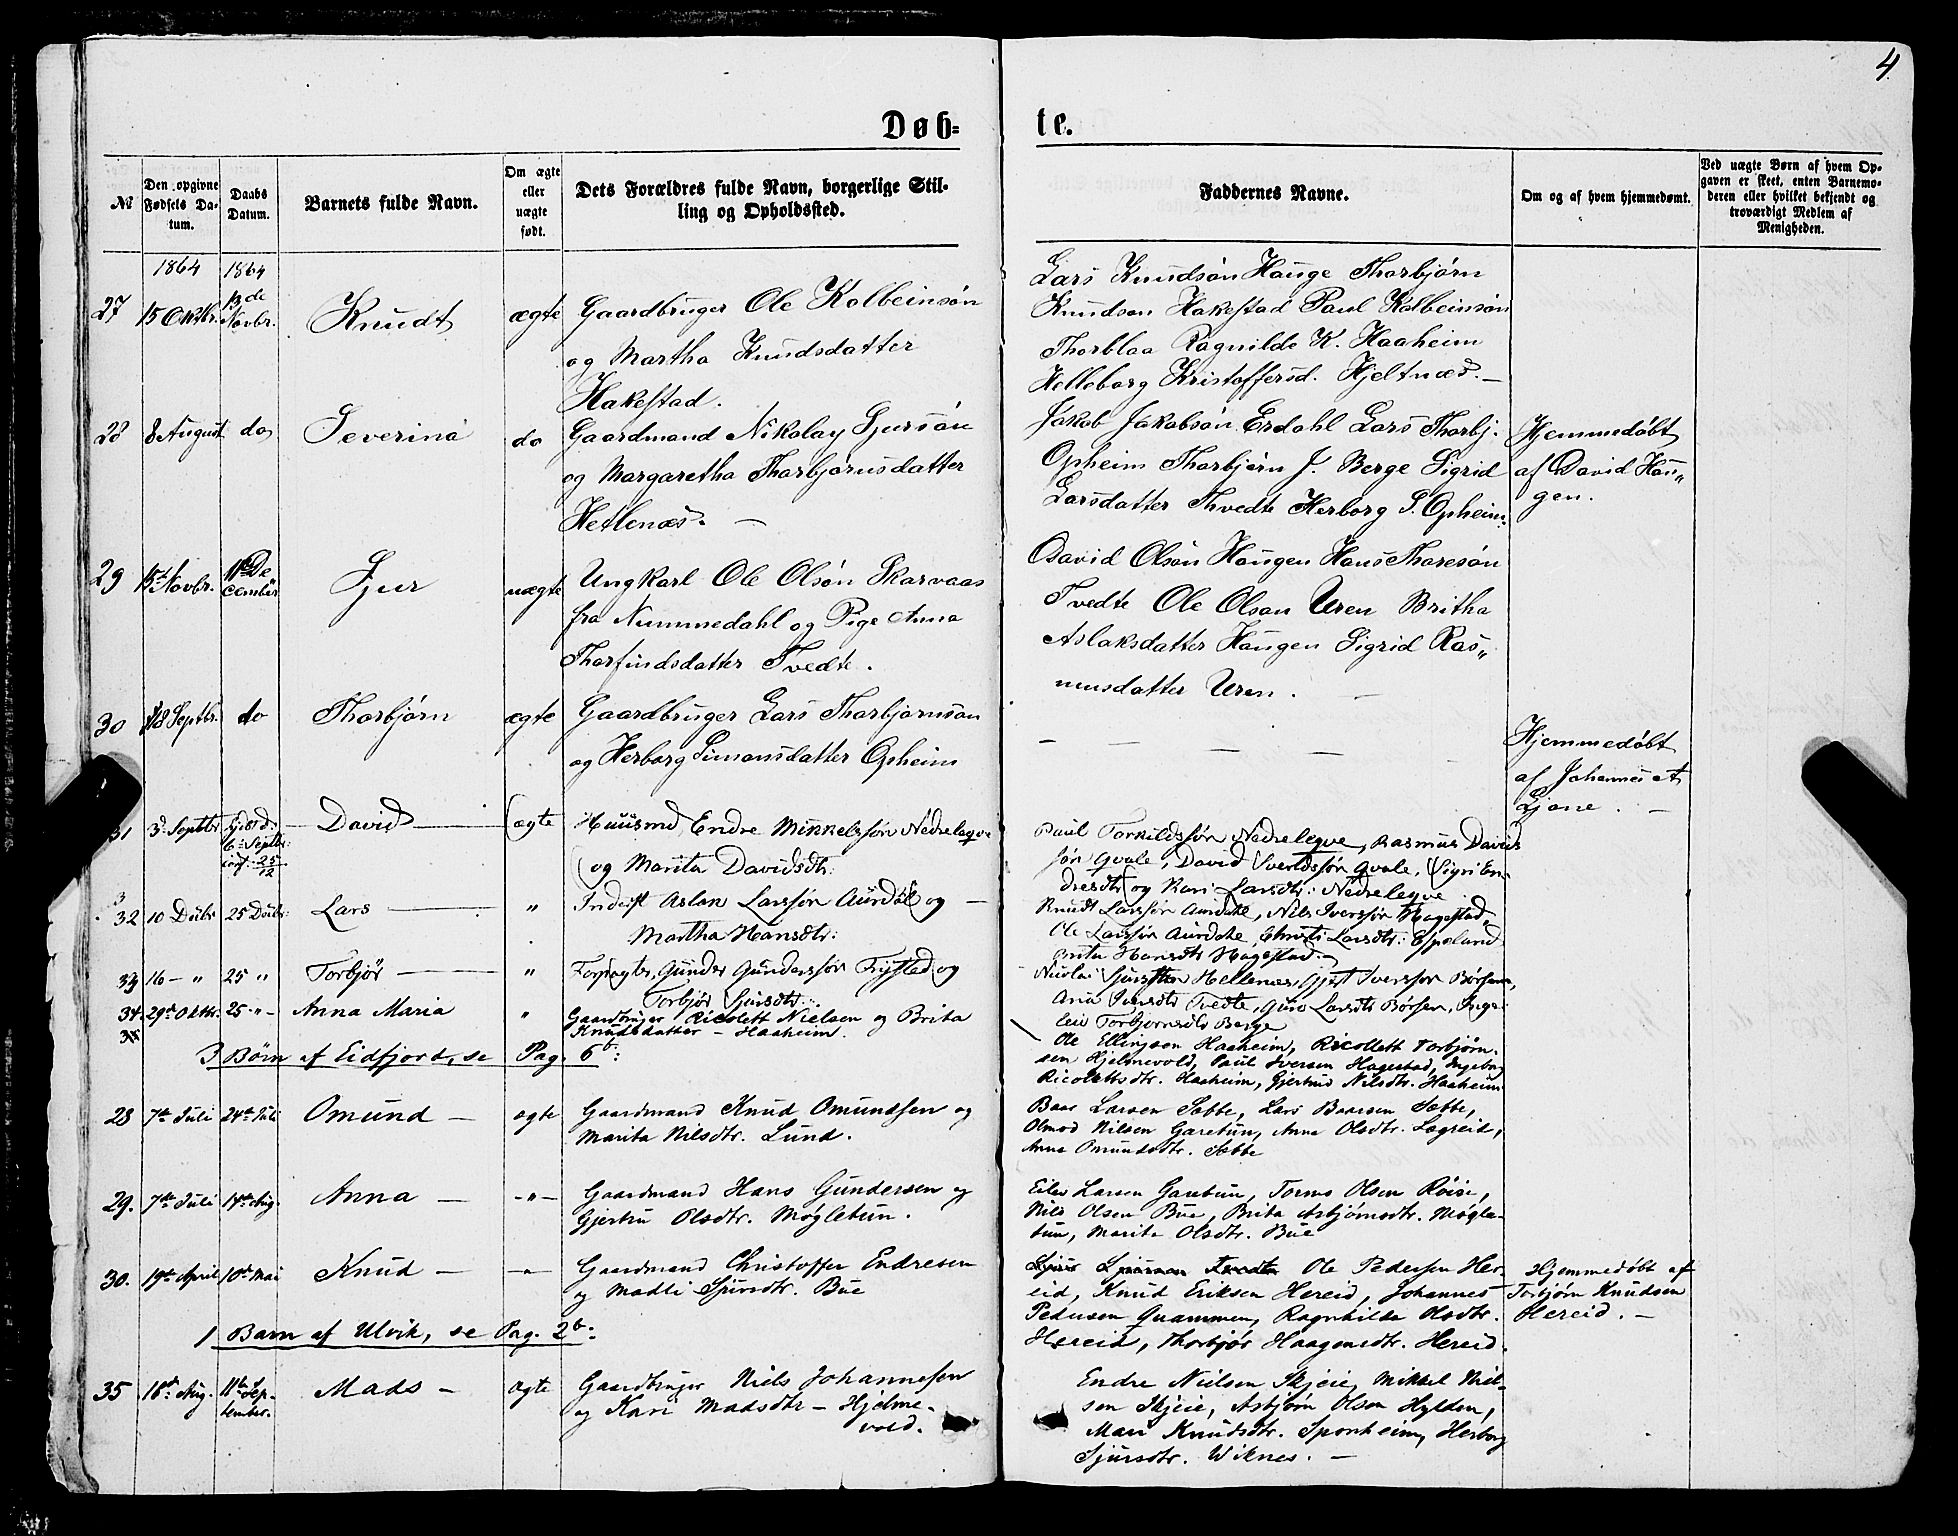 4
Døb=
te.
№
Den opgivne Fødsels Da-tum.
Daabs Datum.
Barnets fulde Navn.
Om ægte eller uægte født.
Dets Forældres fulde Navn, borgerlige Stil-
ling og Opholdssted.
Faddernes Navne.
Om og af hvem hjemmedømt.
Ved uægte Børn af hvem Op-
gaven er skeet, enten Barnemo-
deren eller hvilket bekjendt og
troværdigt Medlem af
Menigheden.
1864 1864
27 15 Oktbr. 13de Novbr. Knudt ægte Gaardbruger Ole Kolbeinsøn
og Martha Knudsdatter
Hakestad.
Lars Knudsøn Hauge Thorbjørn
Knudson Hakestad Paul Kolbeinsøn
Thorblaa Ragnilde K. Haaheim
Helleborg Kristoffersd. Hjeltnæs. —
28 8 August do Severina do Gaardmand Nikolay Sjursøn
og Margaretha Thorbjørnsdatter
Hetlenæs. —
Jakob Jakobsøn Erdahl Lars Thorbj.
Opheim Thorbjørn J. Berge Sigrid
Larsdatter Thvedte Herborg S. Opheim.
Hjemmedøbt
af David Hau„
gen.
29 15t Novbr. 11te De cember Sjur uægte Ungkarl Ole Olsøn Skarvaas
fra Nummedahl og Pige Anna
Thorfindsdatter Tvedte.
David Olsøn Haugen Hans Thoresøn
Tvedte Ole Olson Uren Britha
Aslaksdatter Haugen Sigrid Ras„
musdatter Uren. —
30 18 Septbr. do Thorbjørn ægte Gaardbruger Lars Thorbjørnsøn
og Herborg Simonsdatter Opheim
— — — —
Hjemmedøbt
af Johannes A
Ljone. —
31 3d Septbr 6te Septbr: 25/12 David ægte Huusmd Endre Mikkelssøn Nedrelegve
og Marita Davidsdtr:
Paul Torkildssøn Nedrelegve, Rasmus Davids
søn Qvale, David Sverdssøn Qvale, Sigri En
dresdtr og Kari Larsdtr: Nedrelegve
32 10 Debr 25 Debr: Lars — " Inderst Aslak Larssøn Aurdøl og —
Martha Hansdtr:
Knudt Larssøn Aurdøle, Nils Iverssøn Hagestad,
Ole Larssøn Aurdøle, Christi Larsdtr: Espeland
Brita Hansdtr Hagestad.
33 16 — " 25 " Torbjør — " Gunder Gunderssøn Trystad og
Torbjør Sjursdtr:
Nicolai Sjurssøn Hellenes, Gjest Iverssøn Børsem,
Ana Iversdtr Tvedte, Guro Larsdtr Børsem, Inge-
leiv Torbjørnsdtr Berge
34. 29de Oktbr. 25 - " - Anna Maria " Gaardbruger Ricolett Nielsen og Brita
Knudsdatter — Haaheim.
Ole Ellingson Haaheim, Ricolett Torbjørn-
sen Hjelmevold, Paul Iversen Hagestad, Ingeborg
Ricolettsdtr. Haaheim, Gjertrud Nilsdtr. Haaheim
3 Børn af Eidfjord, se Pag. 6b:
28 7de Juli 24de Juli Omund — ægte Gaardmand Knud Omundsen og
Marita Nilsdtr. Lund.
Baar Larsen Sæbbe, Lars Baarsen Sæbbe,
Olmod Nilsen Garetun, Anna Olsdtr. Lægreid,
Anna Omundsdtr. Sæbbe
29. 7de Juli 14de Aug. Anna — - " - Gaardmand Hans Gundersen og
Gjertru Olsdtr. Møgletun.
Eilev Larsen Garetun, Tormo Olsen Røise,
Nils Olsen Bue, Brita Asbjørnsdtr. Møgle-
tun, Marita Olsdtr. Bue
30. 19de April 10de Mai Knud — - " - Gaardmand Christoffer Endresen
og Madli Sjursdtr. Bue
Ole Pedersen Her-
eid, Knud Eriksen Hereid, Johannes
Pedersen Quammen, Ragnhilda Olsdtr.
Hereid, Thorbjør Haagensdtr. Hereid.
Hjemmedøbt af
Torbjørn Knudsen
Hereid. —
1 Barn af Ulvik, se Pag. 2b:
35 18de Aug. 11te Sep-tember. Mads — ægte Gaardbruger Niels Johannesen
og Kari Madsdtr — Hjelme-
vold.
Endre Nielsen Skjeie, Mikkel Niel-
sen Skjeie, Asbjørn Olsen Hylden,
Mari Knudsdtr. Sponheim, Herborg
Sjursdtr. Wiknes. —